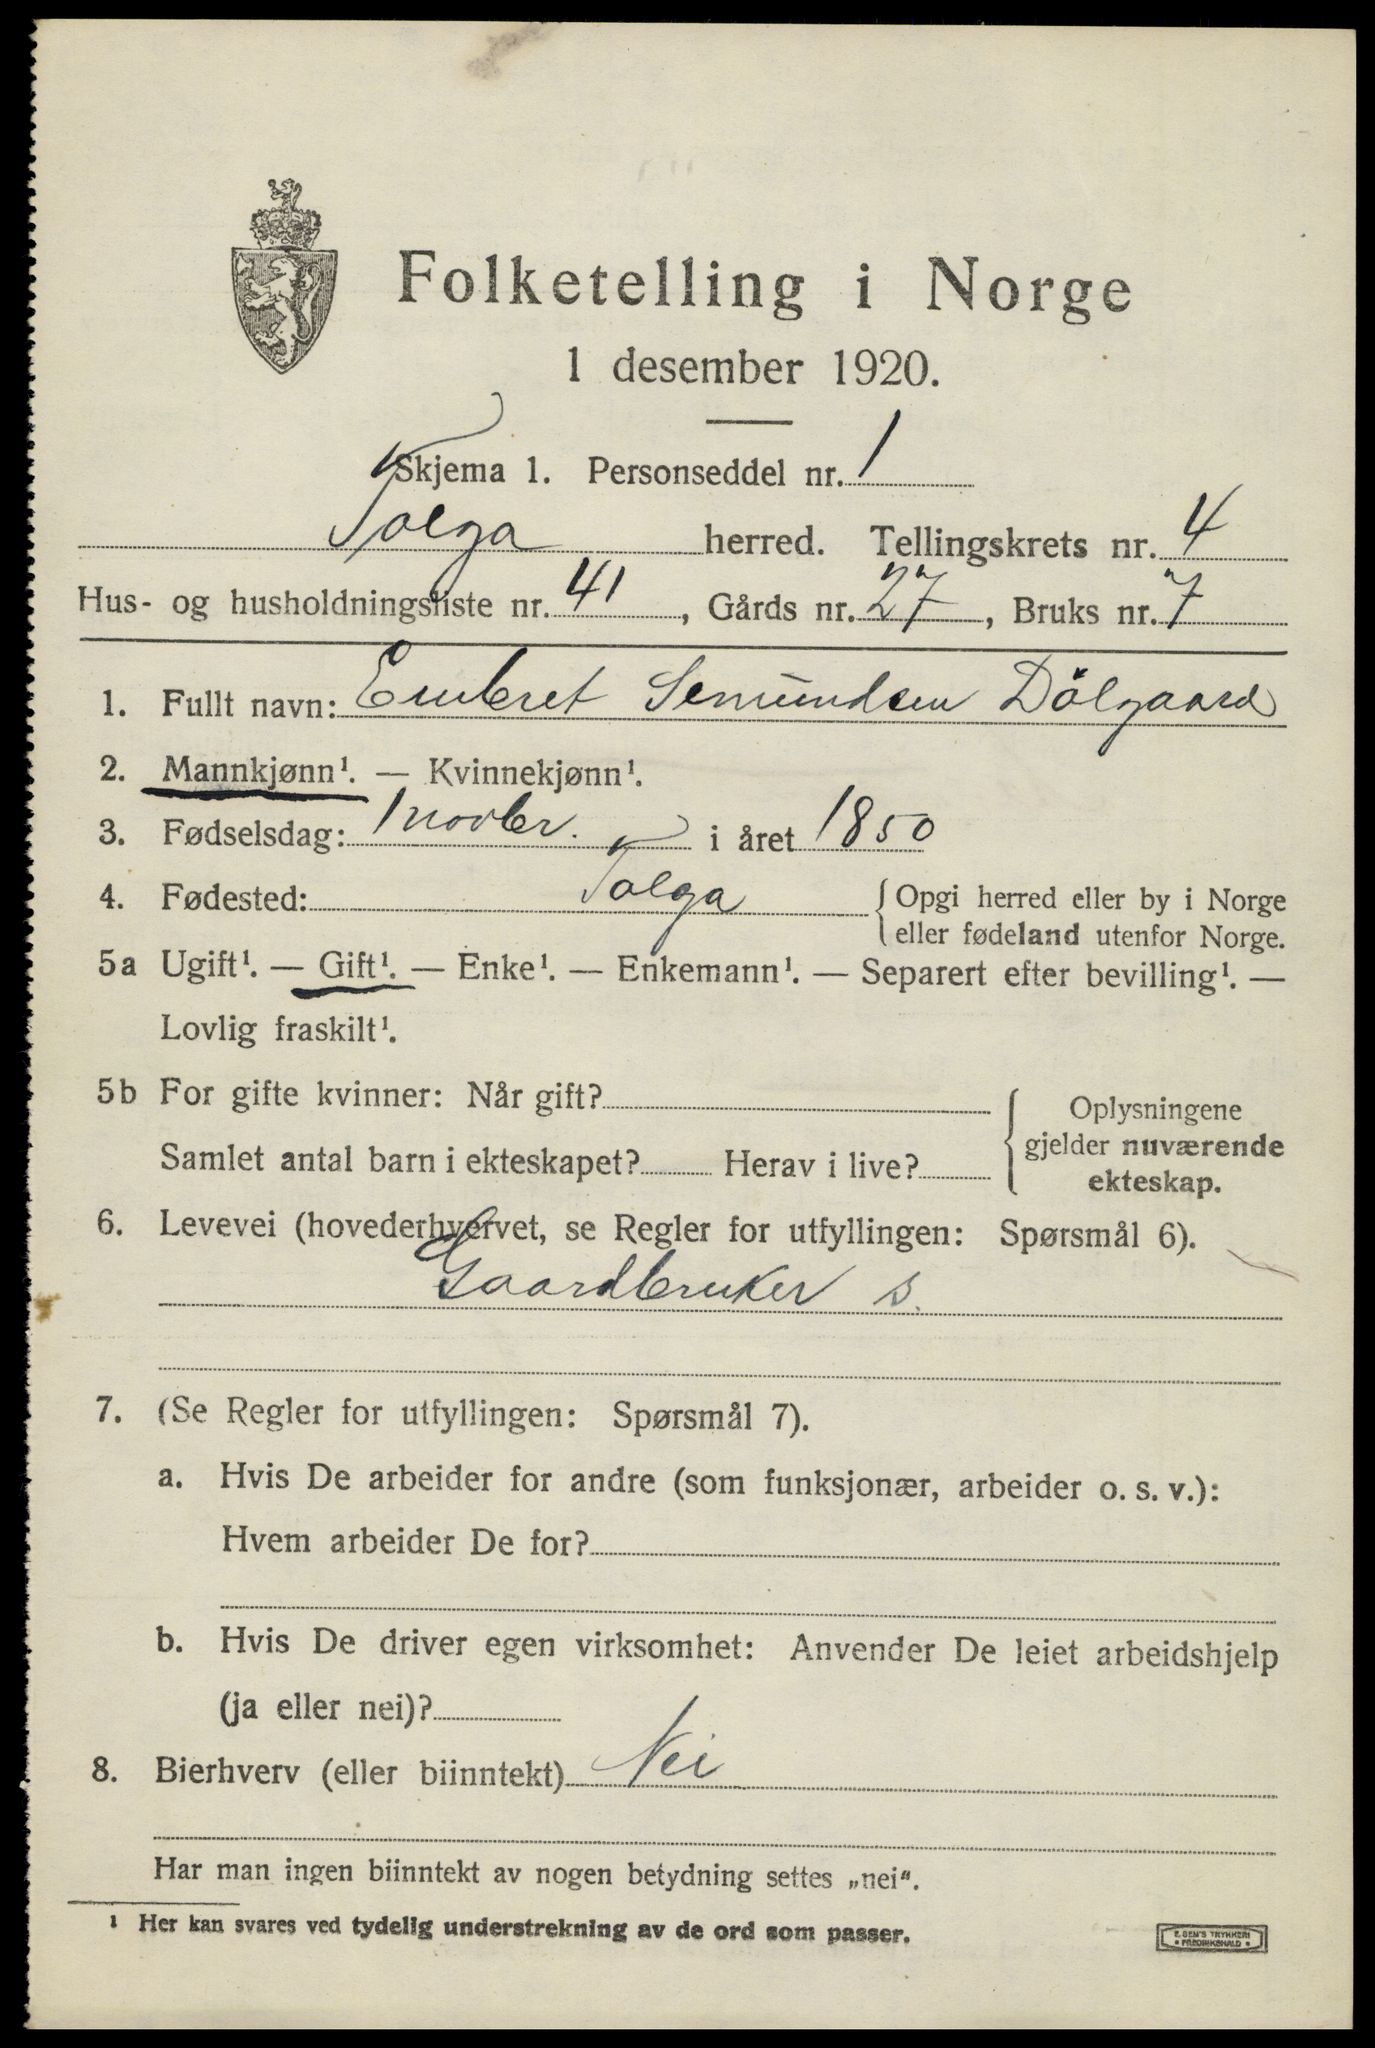 Folketelling i Norge
1 desember 1920.
Skjema 1. Personseddel nr. 1
Tolga herred. Tellingskrets nr. 4
Hus- og husholdningsliste nr. 41, Gårds nr. 27, Bruks nr. 7
1. Fullt navn: Embret Semundsen Dölgaard
2. Mannkjønn¹. — Kvinnekjønn¹.
3. Fødselsdag: 1 novbr. i året 1850
4. Fødested: Tolga {Opgi herred eller by i Norge
eller fødeland utenfor Norge.
5a Ugift¹. — Gift¹. — Enke¹. — Enkemann¹. — Separert efter bevilling¹. —
Lovlig fraskilt¹.
5b For gifte kvinner: Når gift?
Samlet antal barn i ekteskapet? Herav i live?
Oplysningene
gjelder nuværende
ekteskap.
6. Levevei (hovederhvervet, se Regler for utfyllingen: Spørsmål 6).
Gaardbruker s.
7. (Se Regler for utfyllingen: Spørsmål 7).
a. Hvis De arbeider for andre (som funksjonær, arbeider o. s. v.):
Hvem arbeider De for?
b. Hvis De driver egen virksomhet: Anvender De leiet arbeidshjelp
(ja eller nei)?
8. Bierhverv (eller biinntekt) Nei
Har man ingen biinntekt av nogen betydning settes „nei“.
¹ Her kan svares ved tydelig understrekning av de ord som passer.
E. SEM'S TRYKKERI
• FREDRIKSHALD •